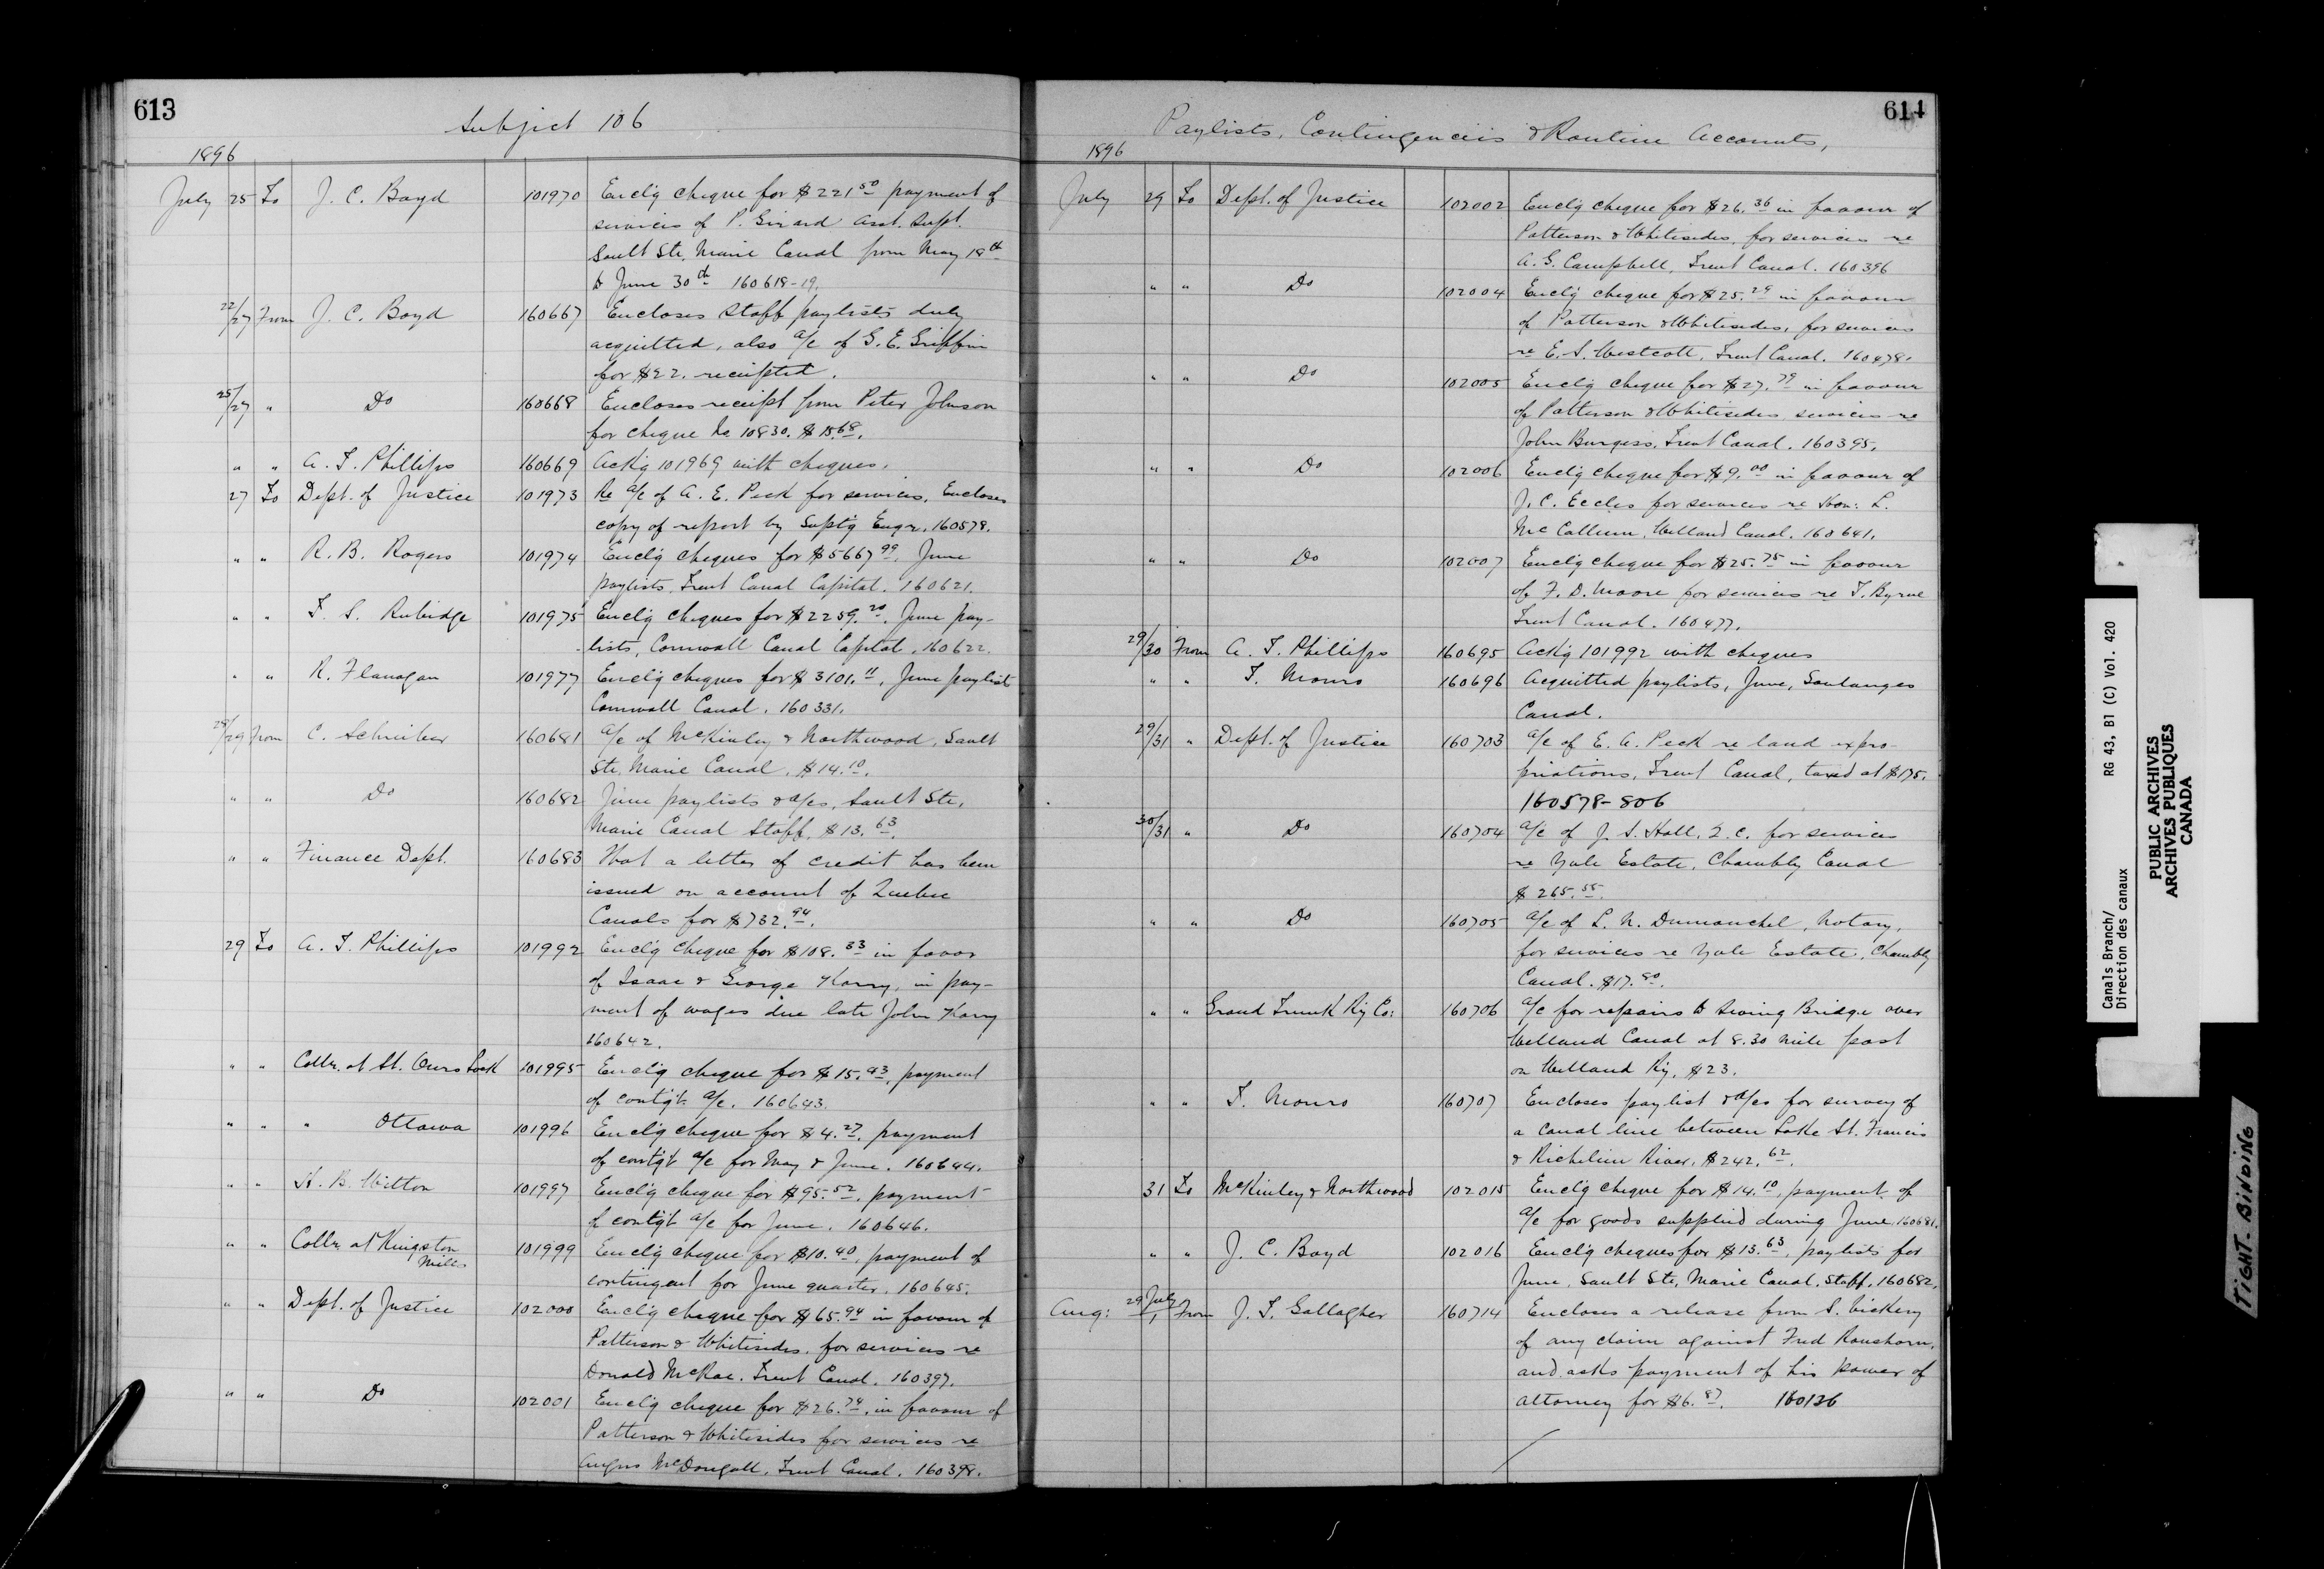 613
Subject 106
1896
July 25 To J. C. Boyd 101970 Enclg cheque for $221.50 payment of
services of P. Girard Asst. Supt.
Sault Ste. Marie Canal from May 18th
to June 30th 160618-19.
22/27 From J. C. Boyd 160667 Encloses Staff paylists duly
acquitted, also a/c of G. E. Griffin
for $22. receipted.
25/27 " Do 160668 Encloses receipt from Peter Johnson
for cheque No 10830. $15.68.
" " A. T. Phillips 160669 Ackg 101969 with cheques.
27 To Dept. of Justice 101973 Re a/c of A. E. Peck for services. Encloses
copy of report by Suptg Engr. 160578.
" " R. B. Rogers 101974 Enclg cheques for $5667.99, June
paylists, Trent Canal Capital. 160621.
" " T. S. Rubidge 101975 Enclg cheques for $2259.20. June pay-
lists, Cornwall Canal Capital. 160622.
" " R. Flanagan 101977 Enclg cheques for $3101.11, June paylists
Cornwall Canal. 160331.
28/29 From C. Schreiber 160681 a/c of McKinley & Northwood, Sault
Ste. Marie Canal, $14.10.
" " Do 160682 June paylists & a/cs, Sault Ste.
Marie Canal Staff, $13.63.
" " Finance Dept. 160683 That a letter of credit has been
issued on account of Quebec
Canals for $732.94.
29 To A. T. Phillips 101992 Enclg cheque for $108.33 in favor
of Isaac & George Harry, in pay-
ment of wages due late John Harry
160642.
" " Collr. at St. Ours Lock 101995 Enclg cheque for $15.43, payment
of contgt a/c. 160643.
" " " Ottawa 101996 Enclg cheque for $4.27, payment
of contgt a/c for May & June. 160644.
" " H. B. Witton 101997 Enclg cheque for $95.52, payment
of contgt a/c for June. 160646.
" " Collr. at Kingston
Mills 101999 Enclg cheque for $10.40, payment of
contingent for June quarter. 160645.
" " Dept. of Justice 102000 Enclg cheque for $65.94 in favour of
Patterson & Whitesides, for services re
Donald McRae. Trent Canal. 160397.
" " Do 102001 Enclg cheque for $26.74, in favour of
Patterson & Whitesides for services re
Angus McDougall, Trent Canal. 160398.
614
Paylists, Contingencies & Routine Accounts,
1896
July 29 To Dept. of Justice 102002 Enclg cheque for $26.36 in favour of
Patterson & Whitesides, for services re
A. G. Campbell, Trent Canal. 160396
" " Do 102004 Enclg cheque for $25.29 in favour
of Patterson & Whitesides, for services
re E. S. Westcott, Trent Canal. 160478.
" " Do 102005 Enclg cheque for $27.79 in favour
of Patterson & Whitesides services re
John Burgess, Trent Canal. 160395.
" " Do 102006 Enclg cheque for $9.00 in favour of
J. C. Eccles for services re Hon: L.
McCallum, Welland Canal. 160641.
" " Do 102007 Enclg cheque for $25.75 in favour
of F. D. Moore for services re T. Byrne
Trent Canal. 160477.
29/30 From A. T. Phillips 160695 Ackg 101992 with cheques
" " T. Monro 160696 Acquitted paylists, June, Soulanges
Canal.
29/31 " Dept. of Justice 160703 a/c of E. A. Peck re land expro-
priations, Trent Canal, taxed at $175.
160578-806
30/31 " Do 160704 a/c of J. S. Hall, Q.C. for services
re Yule Estate, Chambly Canal
$265.55.
" " Do 160705 a/c of L. N. Dumouchel, Notary,
for services re Yule Estate, Chambly
Canal. $17.80.
" " Grand Trunk Ry Co: 160706 a/c for repairs to Swing Bridge over
Welland Canal at 8.30 mile post
on Welland Ry. $23.
" " T. Monro 160707 Encloses paylist & a/cs for survey of
a canal line between Lake St. Francis
& Richelieu River, $242.62.
31 To McKinley & Northwood 102015 Enclg cheque for $14.10, payment of
a/c for goods supplied during June, 160681.
" " J. C. Boyd 102016 Enclg cheques for $13.63, paylists for
June, Sault Ste. Marie Canal, Staff, 160682.
Aug: 29 July/1 From J. T. Gallagher 160714 Encloses a release from S. Vickery
of any claim against Fred Ranshorn,
and asks payment of his power of
attorney for $6.87. 160136
Canals Branch/
Direction des canaux
RG 43, B1 (C) Vol. 420
PUBLIC ARCHIVES
ARCHIVES PUBLIQUES
CANADA
TIGHT BINDING